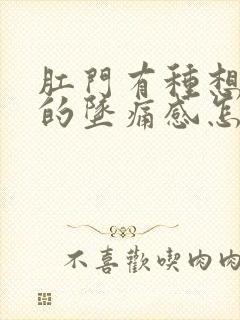 肛門有種想
的墜痛感怎
不喜歡喫肉肉